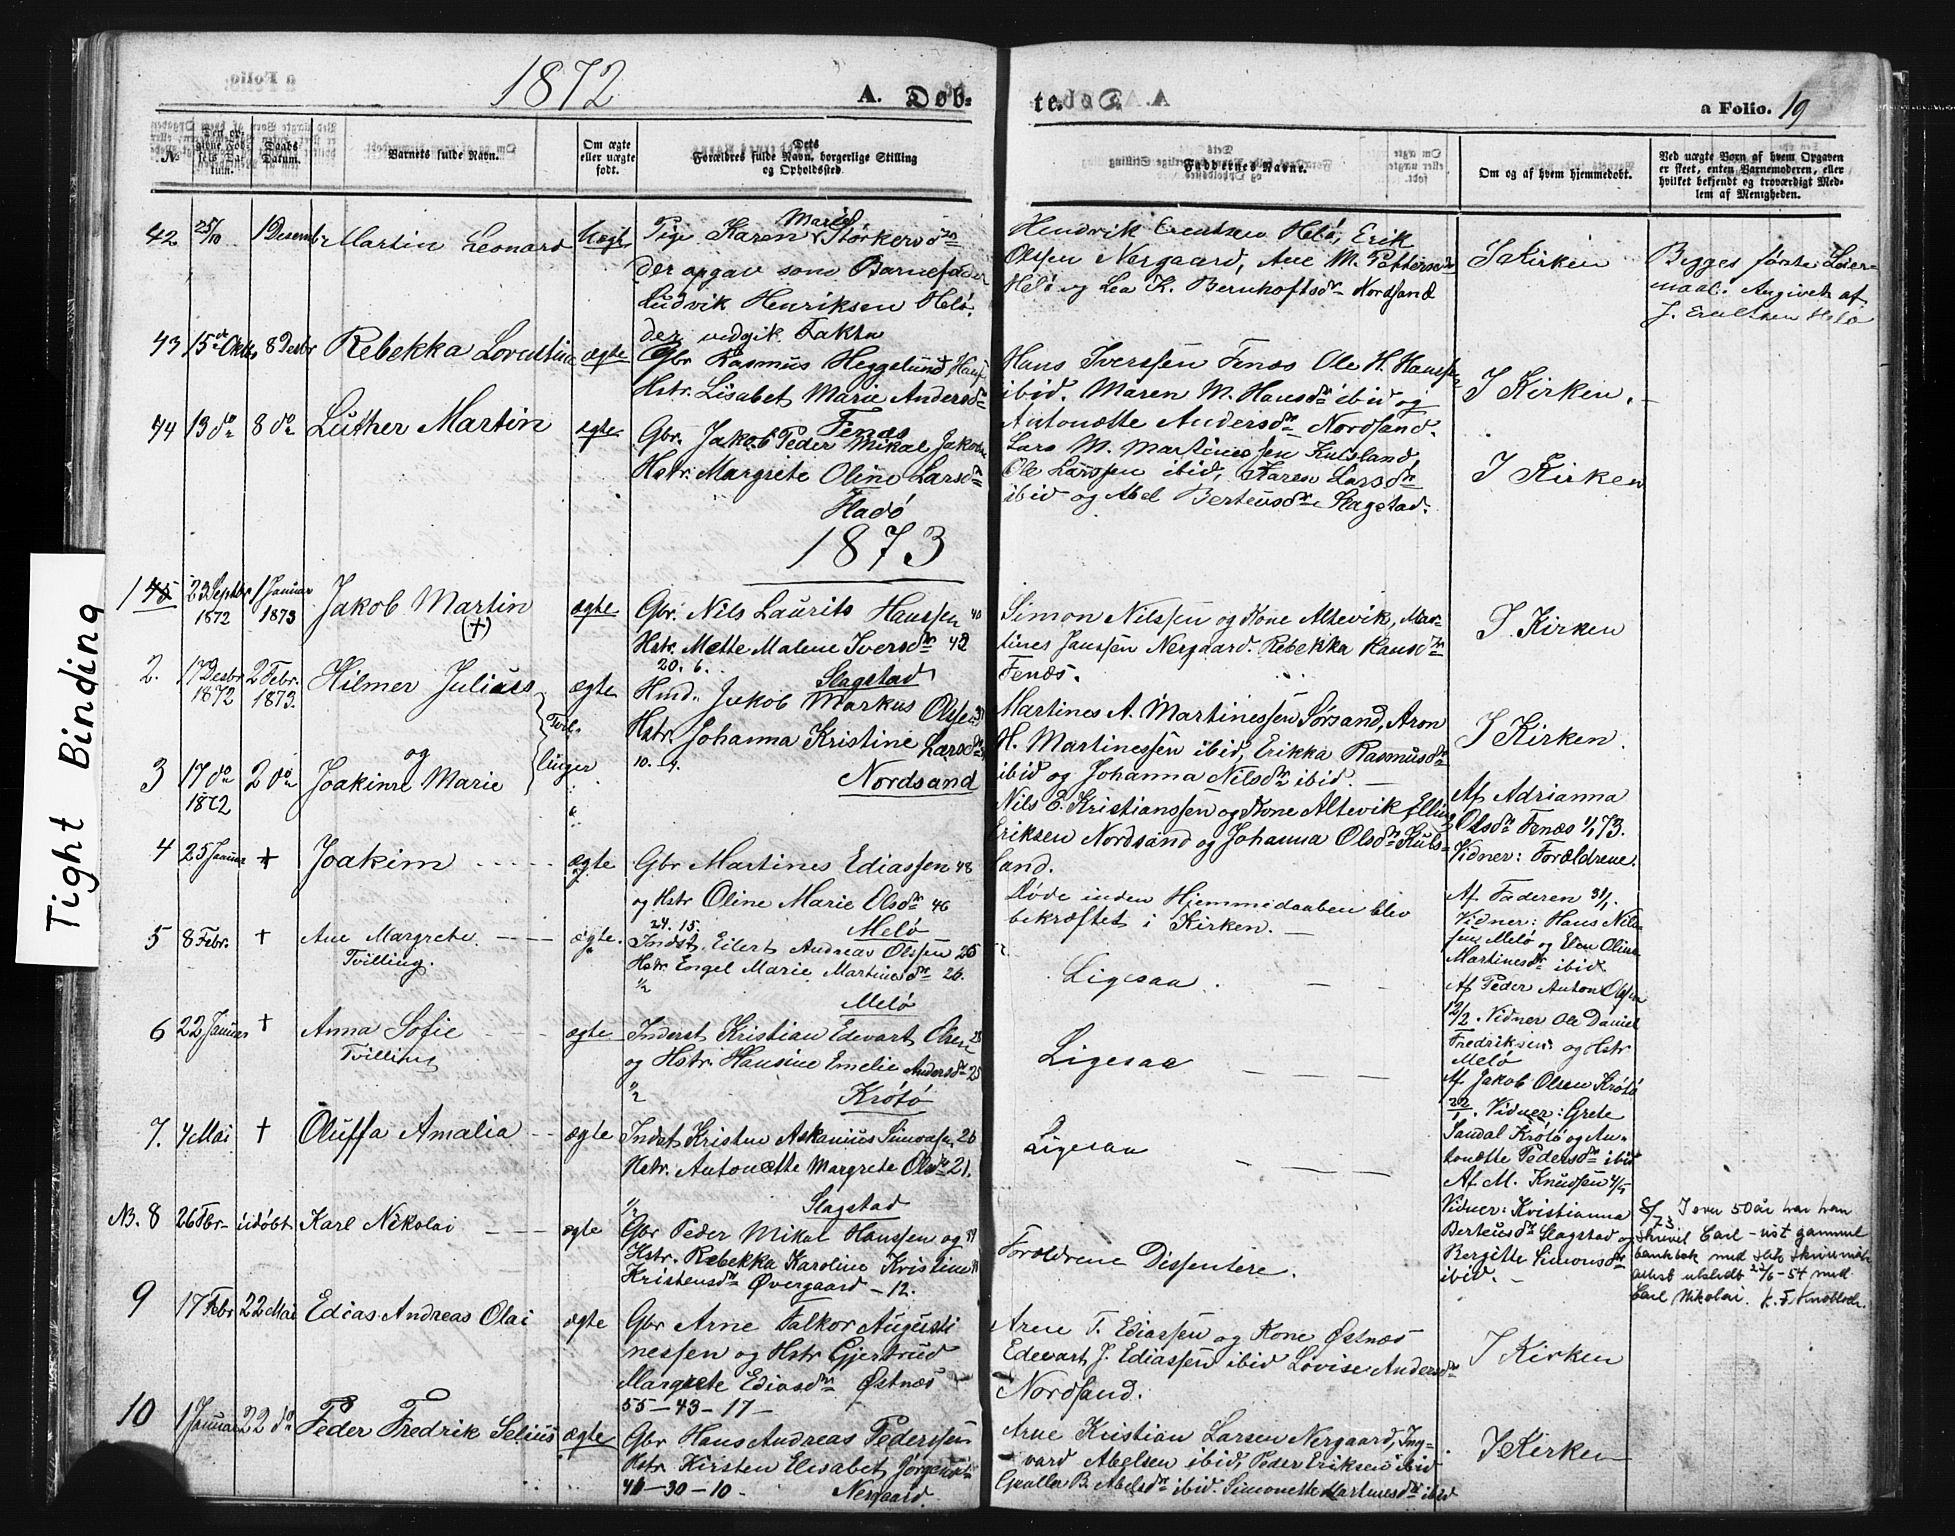 1872
A. Døb-
te.
a Folio. 19
No
Den opgivne Fødsels Datum.
Daabs Datum.
Barnets fulde Navn.
Om ægte eller uægte født.
Dets Forældres fulde Navn, borgerlige Stilling og Opholdssted.
Faddernes Navne.
Om og af hvem hjemmedøbt.
Ved uægte Børn af hvem Opgaven er skeet, enten Barnemoderen, eller hvilket bekjendt og troværdigt Medlem af Menigheden.
42 25/10 1 Desembr Martin Leonard Uægte Pige Karen Marie Størkersdr
der opgav som Barnefader
Ludvik Henriksen Helø,
der vedgik Fakta
Hendrik Erentsen Helø, Erik
Olssen Nergaard, Ane M. Pettersdr
Helø og Lea K. Bernhoftsdr Nordsand
I Kirken
Begges første Leier-
maal. Angivet af
J. Erentsen Helø
43 15de Oktbr 8 Desbr Rebekka Lovistine ægte Gbr Rasmus Heggelund Hans
Hstr. Lisabet Marie Andersdr
Fenæs
Hans Iverssen Fenæs Ole H. Hanssen
ibid. Maren M. Hansdr ibid og
Antonætte Andersdr Nordsand.
I Kirken.
44 13 do 8 do Luther Martin ægte Gbr. Jakob Peder Mikal Jakobsen
Hstr. Margrete Oline Larsdr
Fladø
Lars M. Martinessen Kulsland
Ole Larssen ibid, Karen Larsdr
ibid og Abel Berteusdr Slagstad.
I Kirken
1873
1 45 23 Septbr 1872 1 Januar 1873 Jakob Martin (+) ægte Gbr. Nils Laurits Hanssen 40
Hstr. Mette Malene Iversdr 42
20. 6. Slagstad
Simon Nilssen og Kone Altevik, Mar-
tines Janssen Nergaard. Rebekka Hansdr
Fenæs.
I Kirken
2. 17 Desbr 1872 2 Febr. 1873. Hilmer Julius
og
Tvil-
linger
ægte Hmd. Jakob Markus Olssen
Hstr. Johanna Kristine Larsdr
10. 4. Nordsand
Martines A. Martinessen Sørsand, Aron
H. Martinessen ibid, Erikka Rasmusdr
ibid og Johanna Nilsdr ibid. —
I Kirken.
3 17 do 1872 2 do Joakime Marie
Nils E. Kristianssen og Kone Altevik Elling
Eriksen Nordsand og Johanna Olsdr Kuls-
land.
Af Adrianna
Olsdr Fenæs 1/1 73.
Vidner: Forældrene.
4 25 Januar + Joakim ægte Gbr Martines Ediassen 48
og Hstr Oline Marie Olsdr 46
24. 15. Melø
Døde inden Hjemmedaaben blev
bekræftet i Kirken. —
Af Faderen 31/1.
Vidner: Hans Nils-
sen Melø og Elen Oline
Martinesdr ibid
5 8 Febr. + Ane Margrete.
Tvilling.
ægte. Indst. Eilert Andreas Olssen 25
Hstr Engel Marie Martinesdr 26.
1/2 Melø
Ligesaa.
Af Peder Anton Olssen
12/2. Vidner Ole Daniel
Fredriksen og Hstr
Melø
6 22 Januar + Anna Sofie
Tvilling
ægte Inderst Kristian Edevart Olsen 28
og Hstr. Hansine Emelie Andersdr 25
1/2 Krøtø
Ligesaa
Af Jakob Olsen Krøtø
22/1. Vidner: Grete
Sandal Krøtø og An-
tonætte Pedersdr ibid
7. 4 Mai + Oluffa Amalia ægte Indst Kristen Askanius Simonsen 26
Hstr. Antonætte Margrete Olsdr 21.
1/2 Slagstad
Ligesaa
Af M. Knudsen 4/5
Vidner: Kristianna
Berteusdr Slagstad og
Bergitte Simonsdr
ibid. —
NB. 8 26 Fbr. udøbt Karl Nikolai ægte Gbr Peder Mikal Hanssen og
Hstr. Rebekka Karoline Kristine
Kristensdr Øvergaard — 12.
Forældrene Dissentere.
8/73 I over 50 år har han
skrivit Carl — vist gammel
bankbok med
attest utstedt 22/6 - 54 med
Carl Nikolai.
9 17 Febr 22 Mai Edias Andreas Olai ægte Gbr Arne Falkor Augusti
nessen og Hstr Gjertrud
Margrete Ediasdr Østnæs
55 — 43 — 17 —
Arne T. Ediassen og Kone Østnæs
Edevart J. Ediassen ibid Lovise Andersdr
Nordsand.
I Kirken
10 1 Januar 22 do Peder Fredrik Selius ægte Gbr Hans Andreas Pederssen
Hstr Kirsten Elisabet Jørgensdr
41 — 30 — 10 — Nergaard.
Arne Kristian Larsen Nergaard, Ing-
vard Abelsen ibid, Peder Eriksen ibid
B. Abelsdr ibid. Simonette Martinesdr ibid
I Kirken
Tight Binding